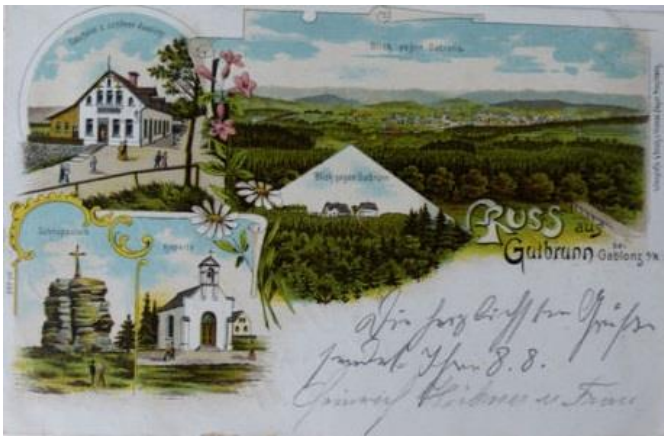 Gasthaus z. schönen Aussicht
Blick gegen Gablonz.
Blick gegen Gutbrunn
Kapelle
Gruss aus
Gutbrunn bei Gablonz a/N.
Die herzlichsten Grüße
sendet Ihnen 8. 8.
Heinrich u Frau